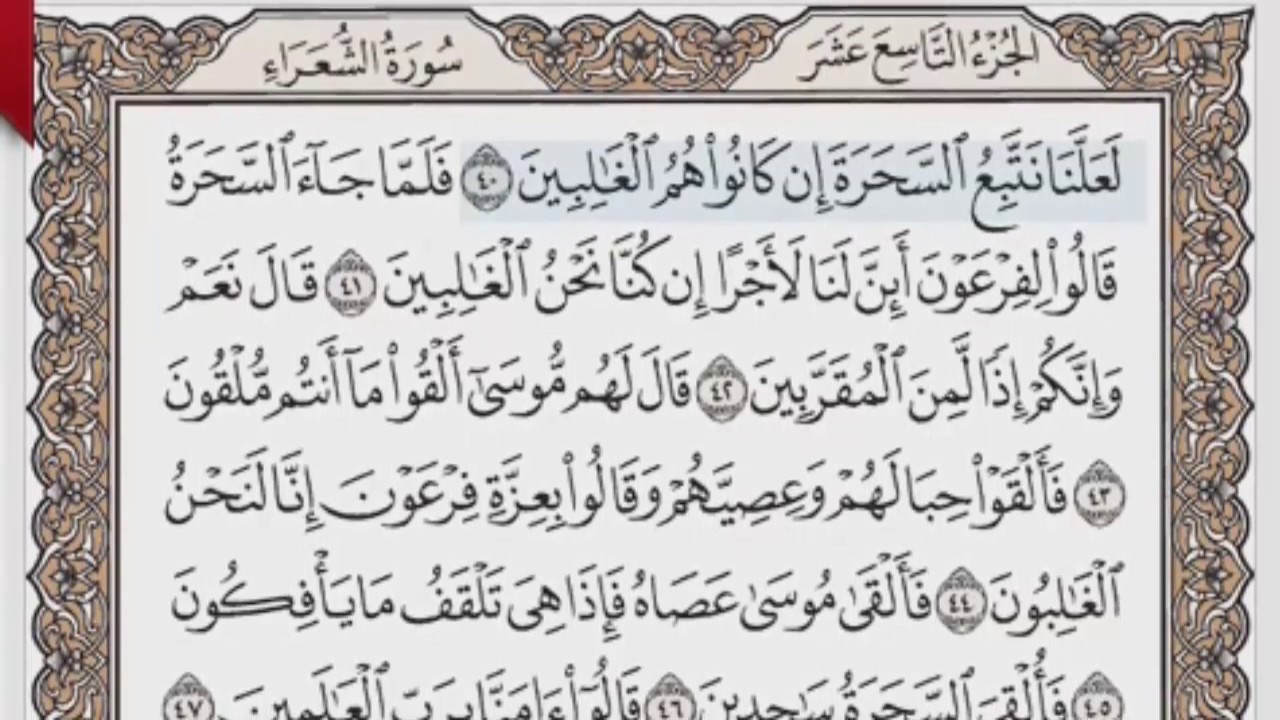 الجُزْءُ التَّاسِعَ عَشَرَ
سُورَةُ الشُّعَرَاءِ
لَعَلَّنَا نَتَّبِعُ ٱلسَّحَرَةَ إِن كَانُوا۟ هُمُ ٱلْغَـٰلِبِينَ ٤٠ فَلَمَّا جَآءَ ٱلسَّحَرَةُ
قَالُوا۟ لِفِرْعَوْنَ أَئِنَّ لَنَا لَأَجْرًا إِن كُنَّا نَحْنُ ٱلْغَـٰلِبِينَ ٤١ قَالَ نَعَمْ
وَإِنَّكُمْ إِذًا لَّمِنَ ٱلْمُقَرَّبِينَ ٤٢ قَالَ لَهُم مُّوسَىٰٓ أَلْقُوا۟ مَآ أَنتُم مُّلْقُونَ
٤٣ فَأَلْقَوْا۟ حِبَالَهُمْ وَعِصِيَّهُمْ وَقَالُوا۟ بِعِزَّةِ فِرْعَوْنَ إِنَّا لَنَحْنُ
ٱلْغَـٰلِبُونَ ٤٤ فَأَلْقَىٰ مُوسَىٰ عَصَاهُ فَإِذَا هِىَ تَلْقَفُ مَا يَأْفِكُونَ
٤٥ فَأُلْقِىَ ٱلسَّحَرَةُ سَـٰجِدِينَ ٤٦ قَالُوٓا۟ ءَامَنَّا بِرَبِّ ٱلْعَـٰلَمِينَ ٤٧